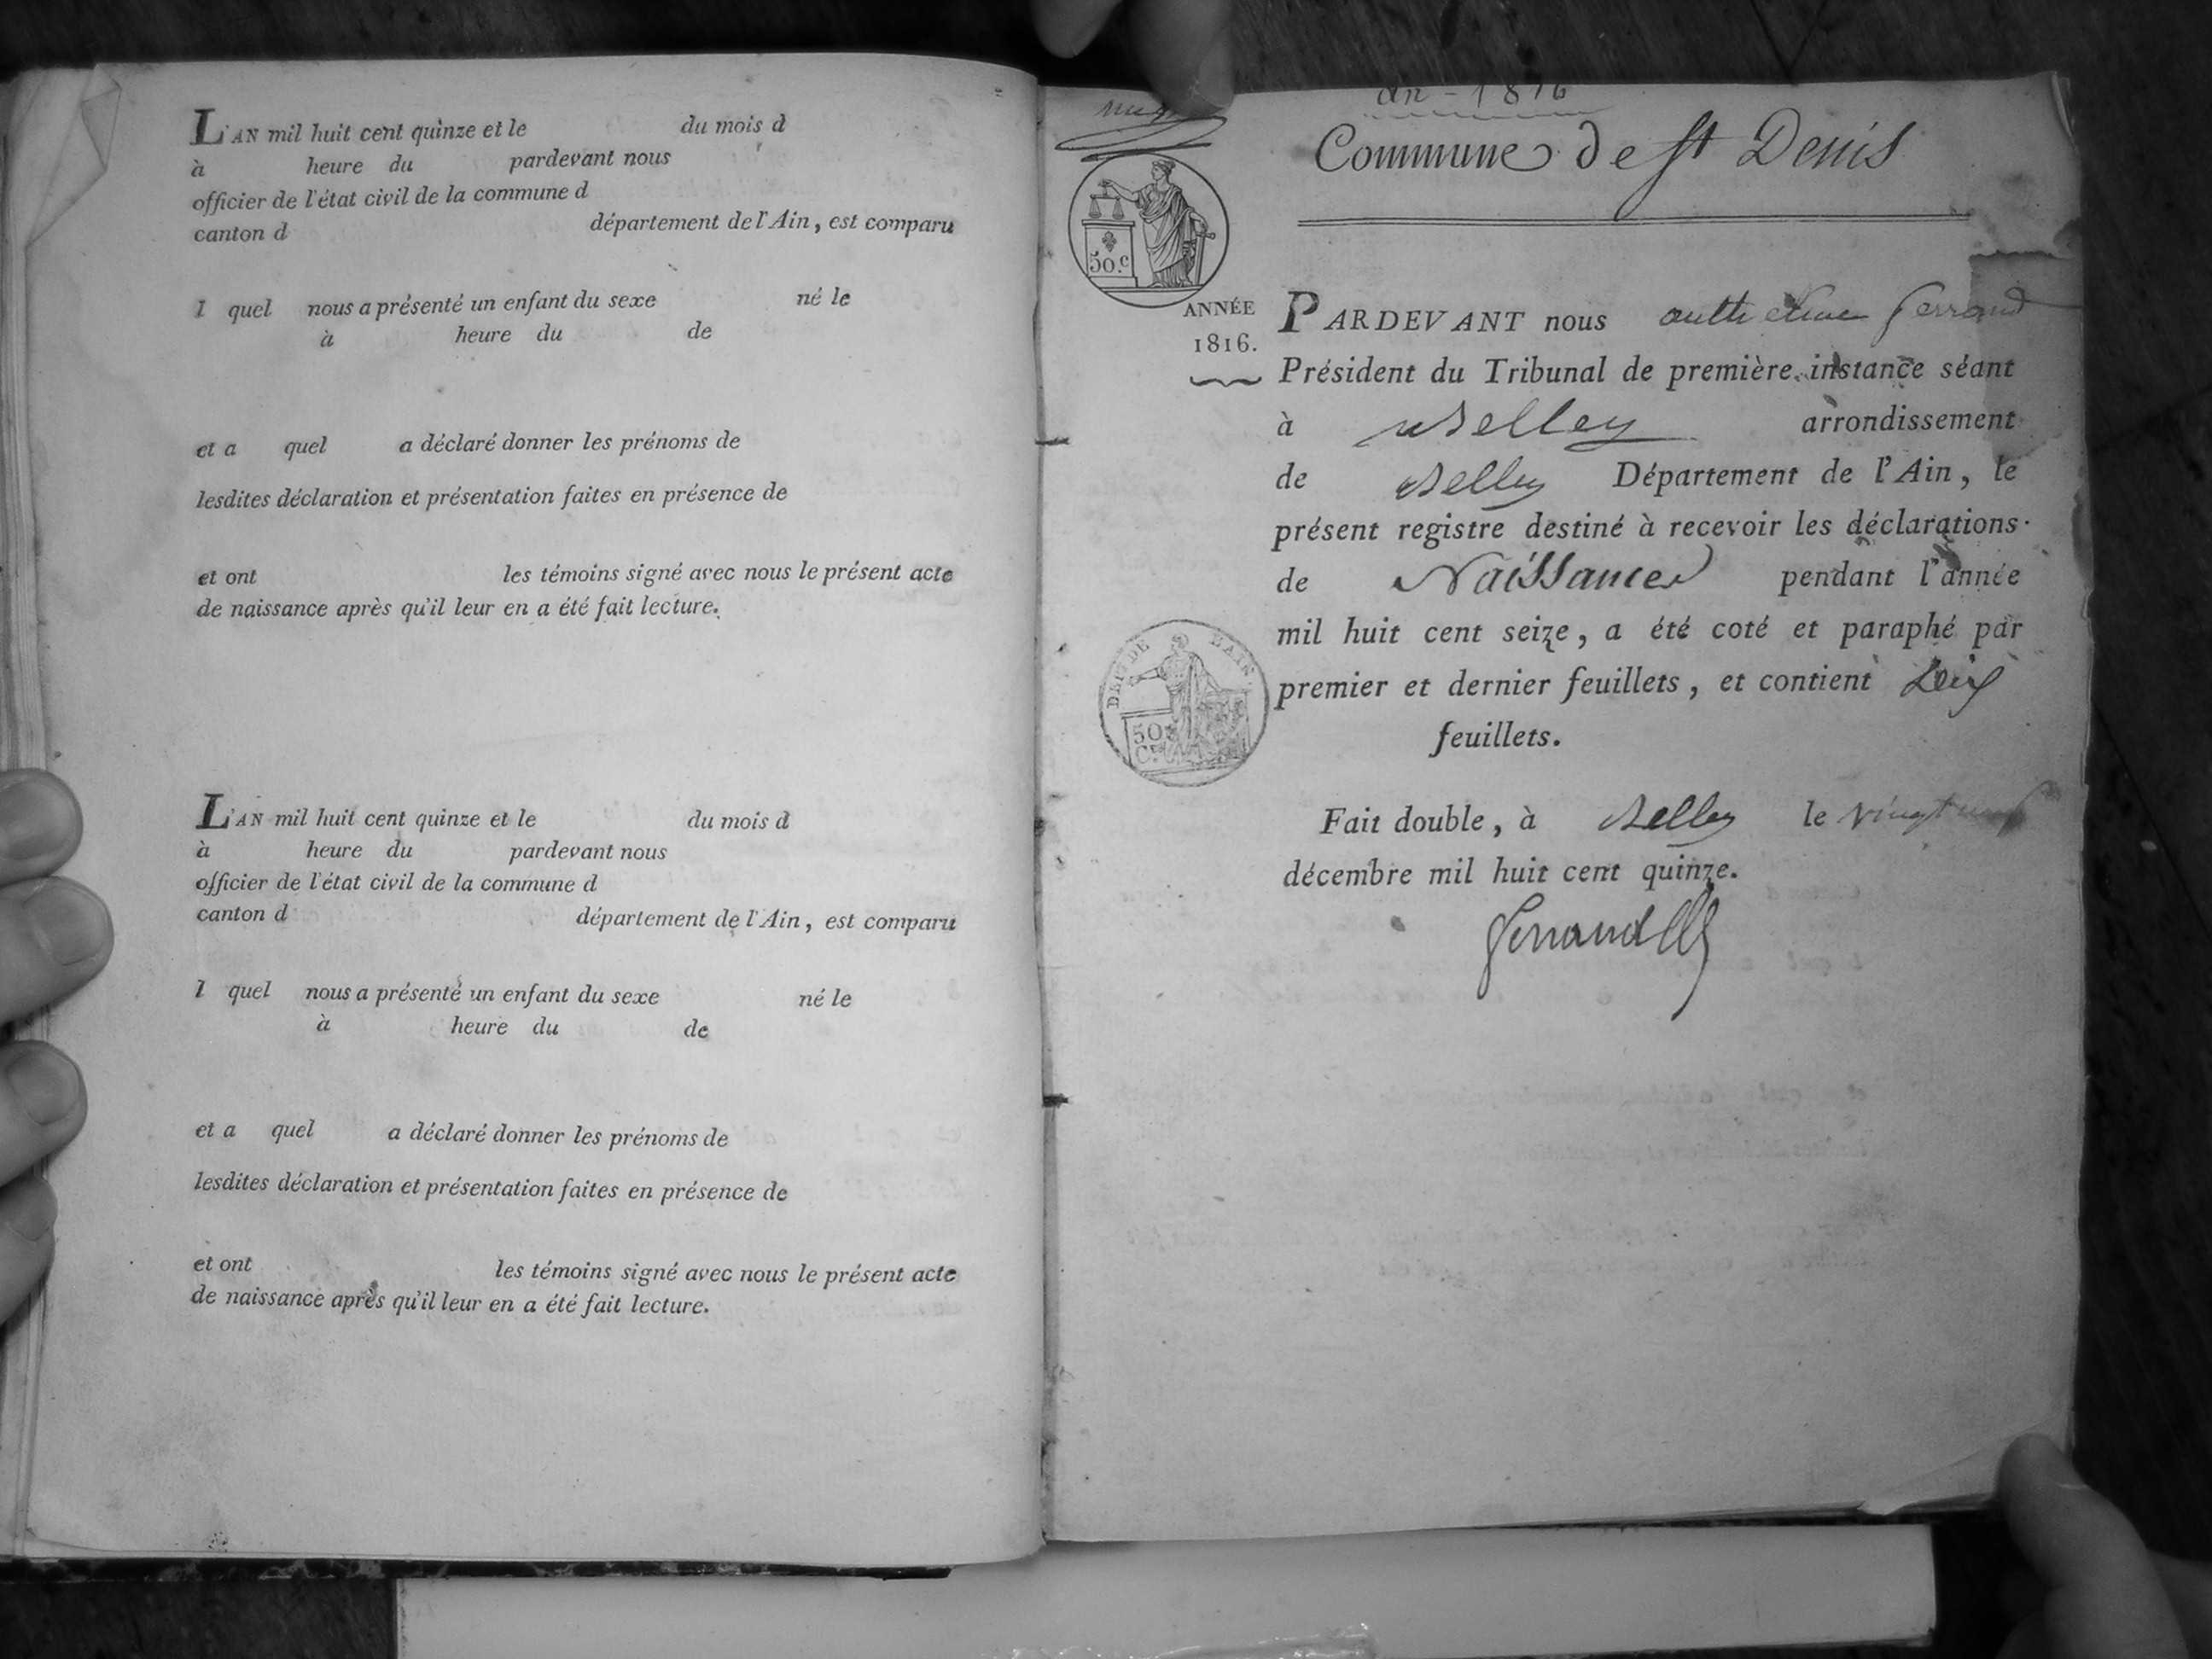 L'AN mil huit cent quinze et le du mois d
à heure du pardevant nous
officier de l'état civil de la commune d
canton d département de l'Ain, est comparu
l quel nous a présenté un enfant du sexe né le
à heure du de
et a quel a déclaré donner les prénoms de
lesdites déclaration et présentation faites en présence de
et ont les témoins signé avec nous le présent acte
de naissance après qu'il leur en a été fait lecture.
L'AN mil huit cent quinze et le du mois d
à heure du pardevant nous
officier de l'état civil de la commune d
canton d département de l'Ain, est comparu
l quel nous a présenté un enfant du sexe né le
à heure du de
et a quel a déclaré donner les prénoms de
lesdites déclaration et présentation faites en présence de
et ont les témoins signé avec nous le présent acte
de naissance après qu'il leur en a été fait lecture.
an - 1816
Commune de St Denis
50.c
ANNÉE
1816.
PARDEVANT nous
Président du Tribunal de première instance séant
à Belley arrondissement
de Belley Département de l'Ain, le
présent registre destiné à recevoir les déclarations
de Naissances pendant l'année
mil huit cent seize, a été coté et paraphé par
premier et dernier feuillets, et contient
feuillets.
DEPT DE L'AIN
50
C.
Fait double, à Belley le vingt
décembre mil huit cent quinze.